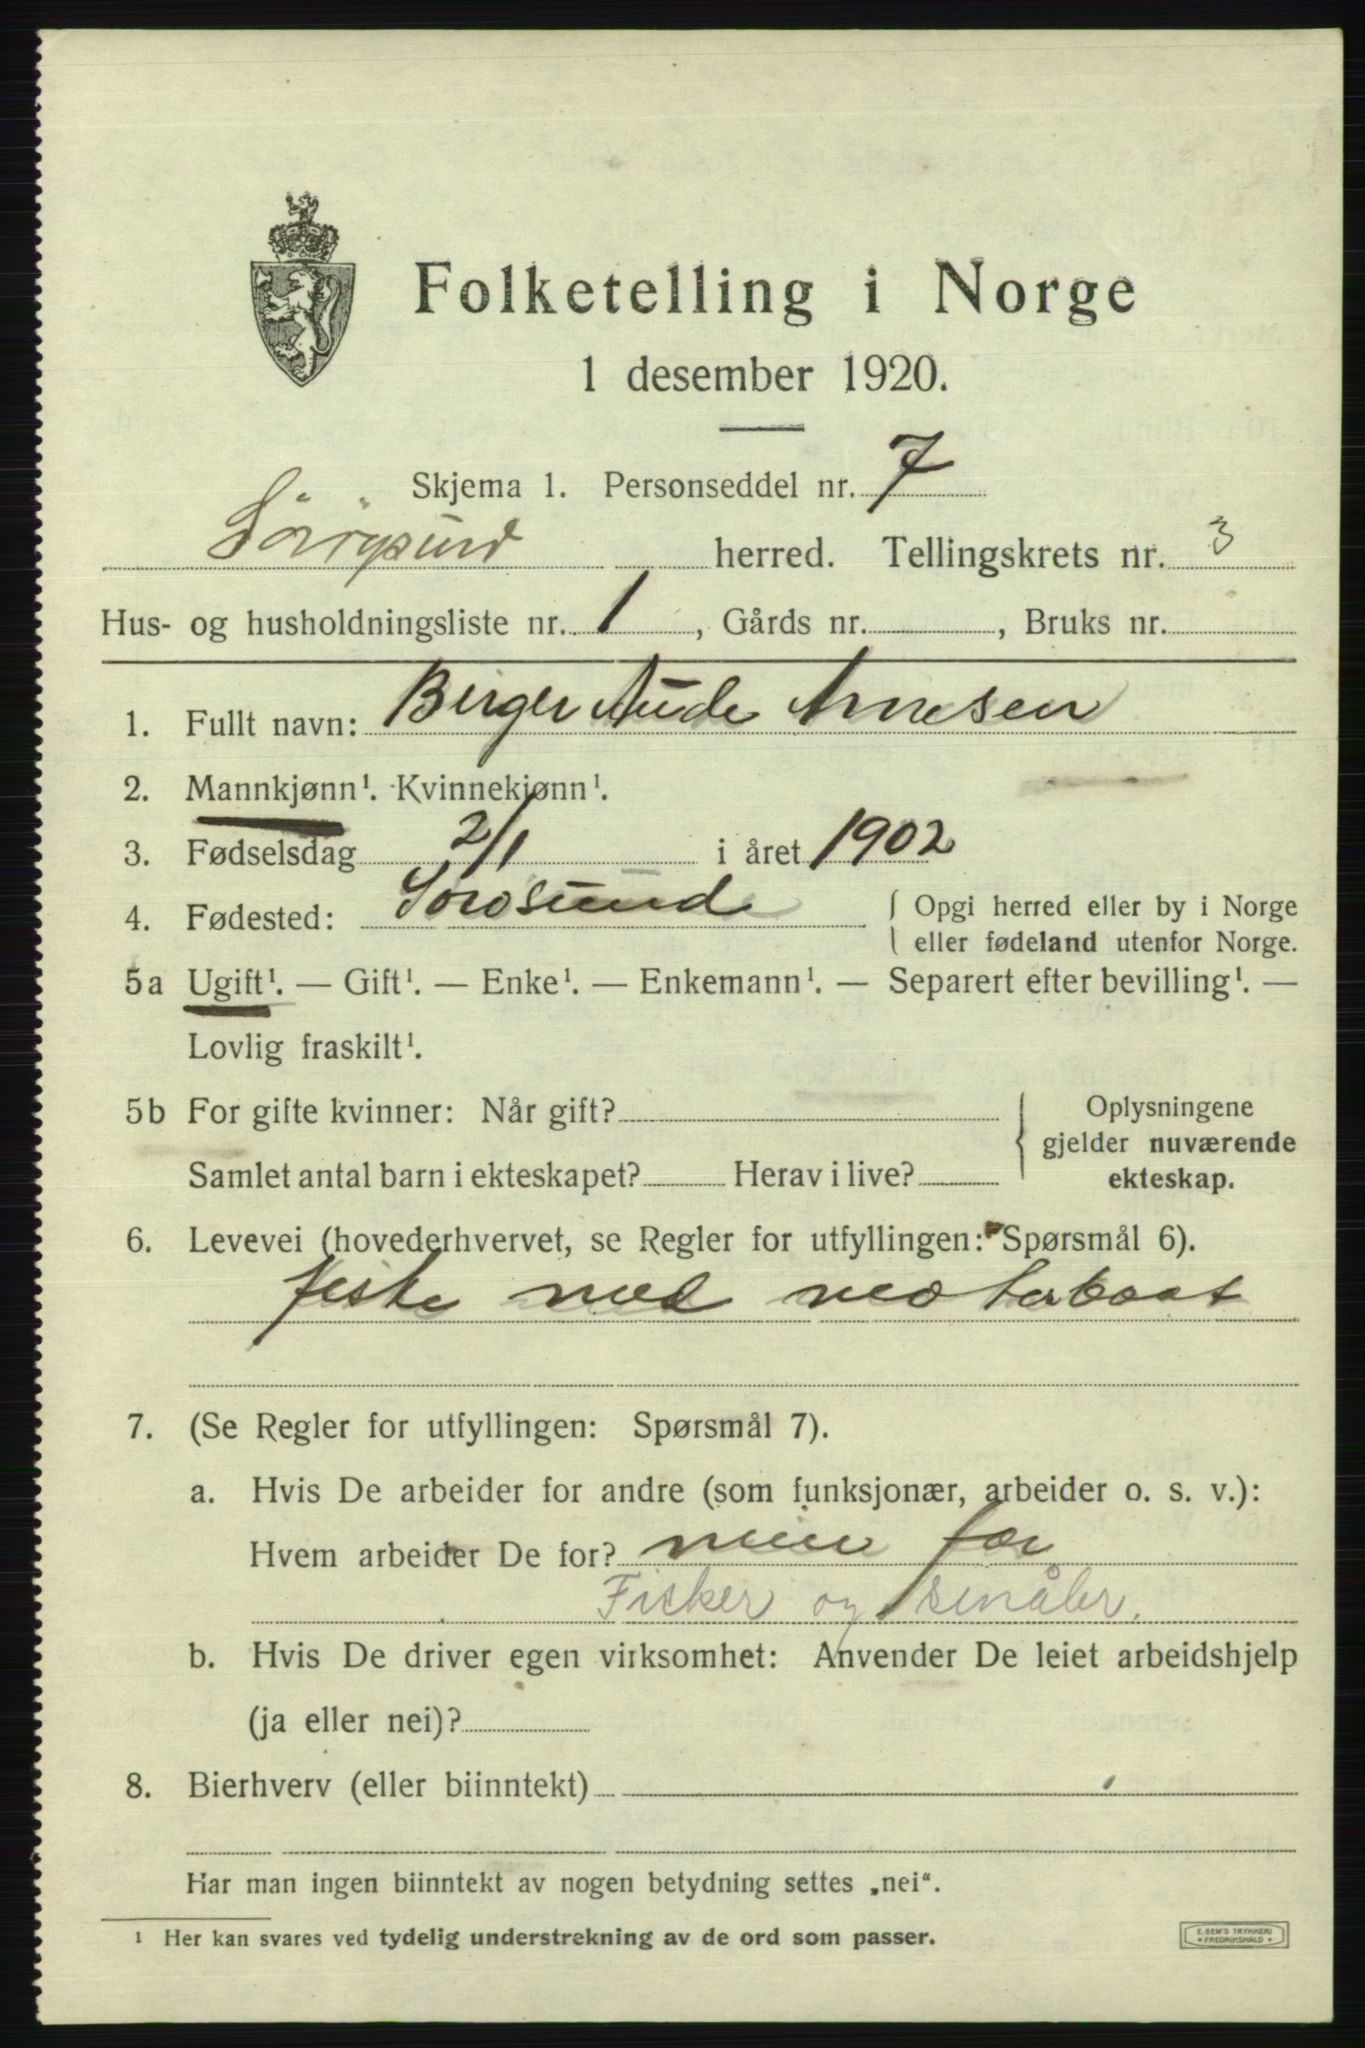 Folketelling i Norge
1 desember 1920.
Skjema 1. Personseddel nr. 7
Sörøysund herred. Tellingskrets nr. 3
Hus- og husholdningsliste nr. 1, Gårds nr. , Bruks nr.
1. Fullt navn: Birger Aude Arnesen
2. Mannkjønn¹. Kvinnekjønn¹.
3. Fødselsdag 2/1 i året 1902
4. Fødested: Sörösund { Opgi herred eller by i Norge
eller fødeland utenfor Norge.
5a Ugift¹. — Gift¹. — Enke¹. — Enkemann¹. — Separert efter bevilling¹. —
Lovlig fraskilt¹.
5b For gifte kvinner: Når gift? { Oplysningene
gjelder nuværende
Samlet antal barn i ekteskapet? Herav i live? ekteskap.
6. Levevei (hovederhvervet, se Regler for utfyllingen: Spørsmål 6).
fiske med motorbaat
7. (Se Regler for utfyllingen: Spørsmål 7).
a. Hvis De arbeider for andre (som funksjonær, arbeider o. s. v.):
Hvem arbeider De for? min far
Fisker og småbr.
b. Hvis De driver egen virksomhet: Anvender De leiet arbeidshjelp
(ja eller nei)?
8. Bierhverv (eller biinntekt)
Har man ingen biinntekt av nogen betydning settes „nei“.
¹ Her kan svares ved tydelig understrekning av de ord som passer.
E. SEM'S TRYKKERI
* FREDRIKSHALD *